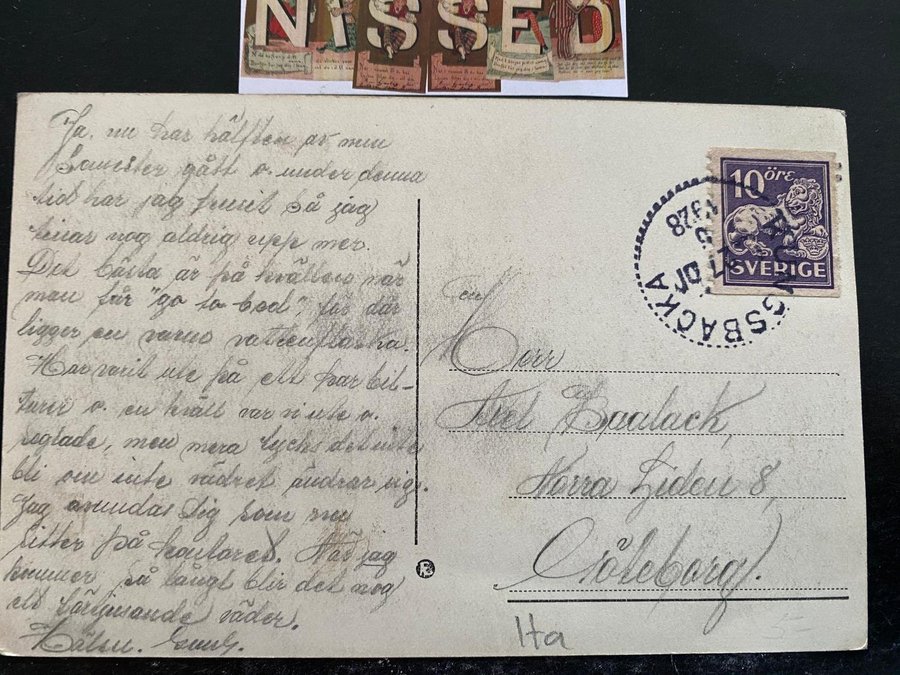 NISSED
Ja, nu har hälften av min
semester gått o. under denna
tid har jag frusit så jag
tinar nog aldrig upp mer.
Det bästa är på kvällen när
man får "go to bed", för där
ligger en varm vattenflaska.
Har varit ute på ett par bil-
turer o. en kväll var vi ute o.
seglade, men mera lycks det inte
bli om inte vädret ändrar sig.
Jag avundas Dig som nu
sitter på kontoret. När jag
kommer, så långt blir det nog
ett förtjusande väder.
Hälsn.
10 ÖRE
SVERIGE
KUNGSBACKA
1928
Herr
Axel
Norra Liden 8,
Göteborg.
Ita